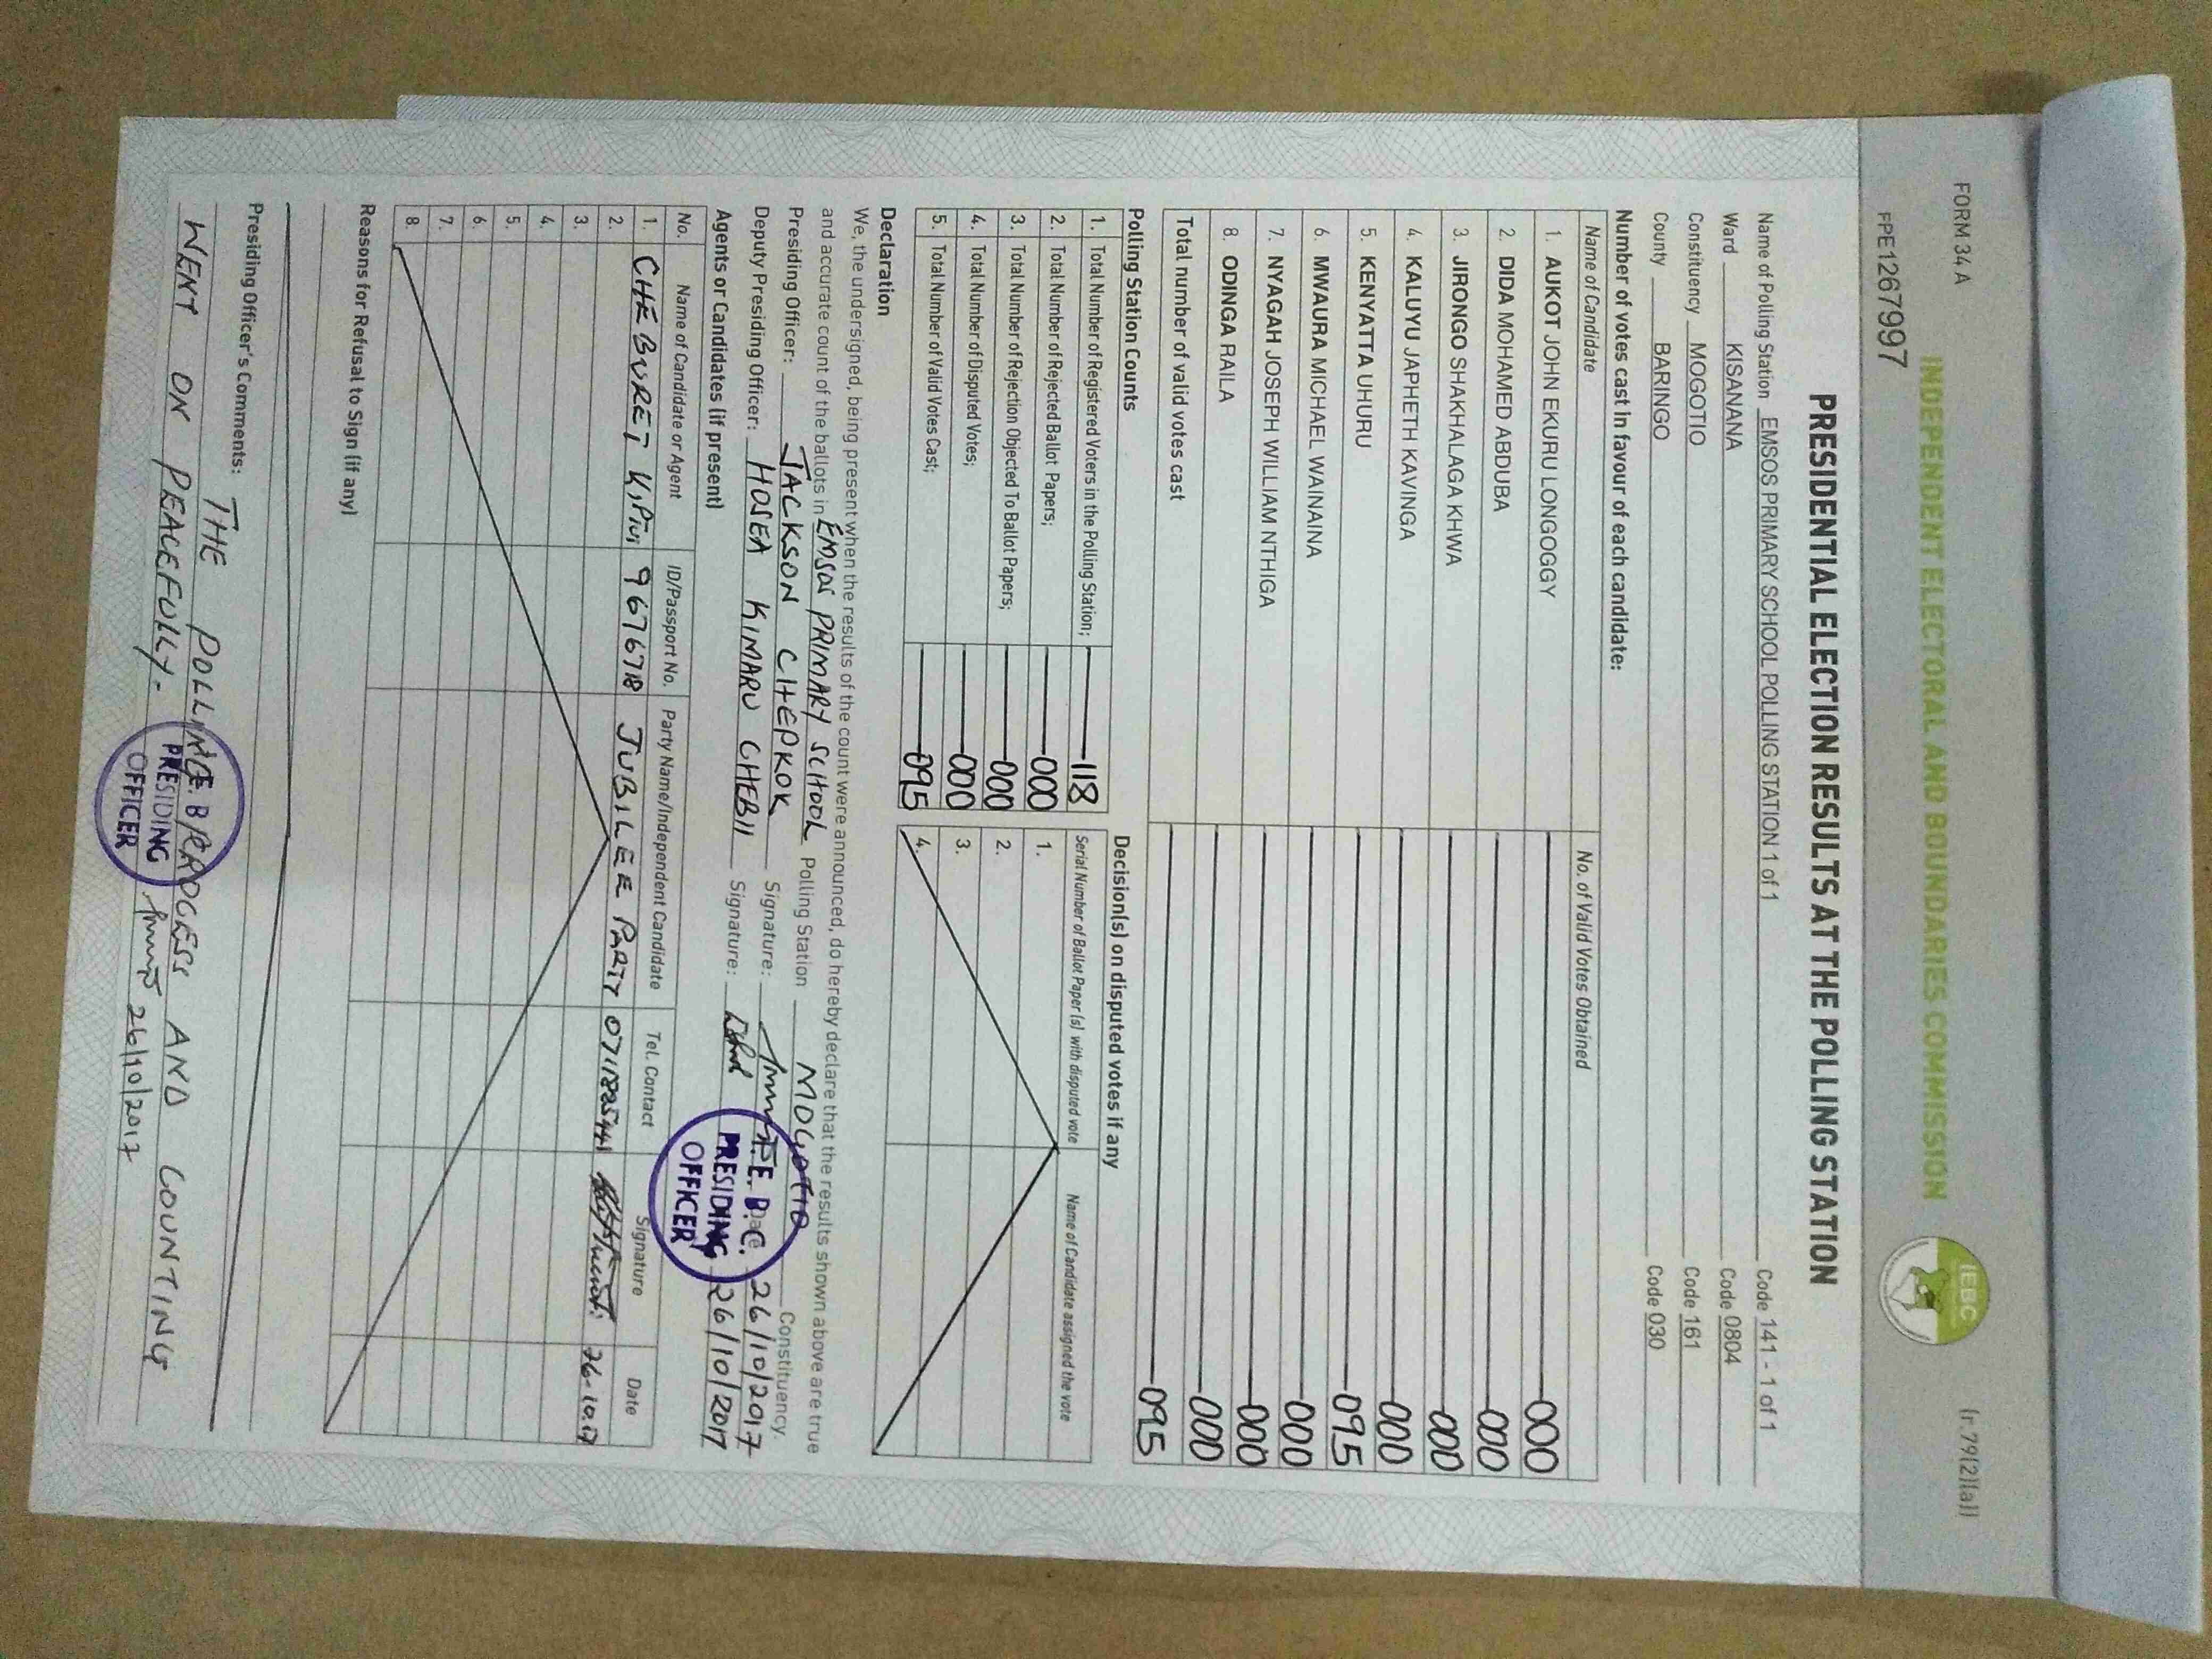 FORM 34 A
(r.79(2)(a))
INDEPENDENT ELECTORAL AND BOUNDARIES COMMISSION
IEBC
FPE1267997
PRESIDENTIAL ELECTION RESULTS AT THE POLLING STATION
Name of Polling Station EMSOS PRIMARY SCHOOL POLLING STATION 1 of 1 Code 141 - 1 of 1
Ward KISANANA Code 0804
Constituency MOGOTIO Code 161
County BARINGO Code 030
Number of votes cast in favour of each candidate:
Name of Candidate No. of Valid Votes Obtained
1. AUKOT JOHN EKURU LONGOGGY 000
2. DIDA MOHAMED ABDUBA 000
3. JIRONGO SHAKHALAGA KHWA 000
4. KALUYU JAPHETH KAVINGA 000
5. KENYATTA UHURU 095
6. MWAURA MICHAEL WAINAINA 000
7. NYAGAH JOSEPH WILLIAM NTHIGA 000
8. ODINGA RAILA 000
Total number of valid votes cast 095
Polling Station Counts
1. Total Number of Registered Voters in the Polling Station; 118
2. Total Number of Rejected Ballot Papers; 000
3. Total Number of Rejection Objected To Ballot Papers; 000
4. Total Number of Disputed Votes; 000
5. Total Number of Valid Votes Cast; 095
Decision(s) on disputed votes if any
Serial Number of Ballot Paper (s) with disputed vote Name of Candidate assigned the vote
1.
2.
3.
4.
Declaration
We, the undersigned, being present when the results of the count were announced, do hereby declare that the results shown above are true
and accurate count of the ballots in EMSOS PRIMARY SCHOOL Polling Station MOGOTIO Constituency.
Presiding Officer: JACKSON CHEPKOK Signature: Date 26/10/2017
Deputy Presiding Officer: HOSEA KIMARU CHEBII Signature: 26/10/2017
I.E.B.C.
PRESIDING
OFFICER
Agents or Candidates (if present)
No. Name of Candidate or Agent ID/Passport No. Party Name/Independent Candidate Tel. Contact Signature Date
1. CHEBURET 9676718 JUBILEE PARTY 26-10-17
2.
3.
4.
5.
6.
7.
8.
Reasons for Refusal to Sign (if any)
Presiding Officer's Comments: THE POLLING PROCESS AND COUNTING
WENT ON PEACEFULLY. 26/10/2017
I.E.B.C.
PRESIDING
OFFICER